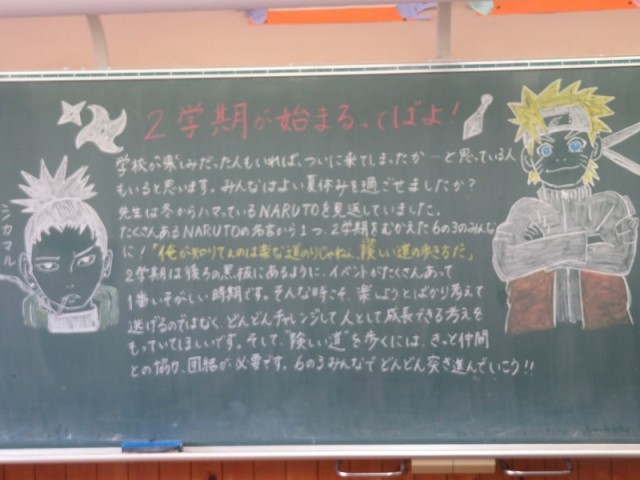 2学期が始まるってばよ!
学校が楽しみだった人もいれば、ついに来てしまったか…と思っている人
もいると思います。みんなはよい夏休みを過ごせましたか?
先生は冬からハマっているNARUTOを見返していました。
たくさんあるNARUTOの名言から1つ、2学期をむかえた6の3のみんな
に!「俺が知りてぇのは楽な道のりじゃねぇ、険しい道の歩き方だ」
2学期は後ろの黒板にあるように、イベントがたくさんあって
1番いそがしい時期です。そんな時こそ、楽しようとばかり考えて
逃げるのではなく、どんどんチャレンジして人として成長できる考えを
もっていてほしいです。そして、"険しい道"を歩くには、きっと仲間
との協力、団結が必要です。6の3みんなでどんどん突き進んでいこう!!
シカマル